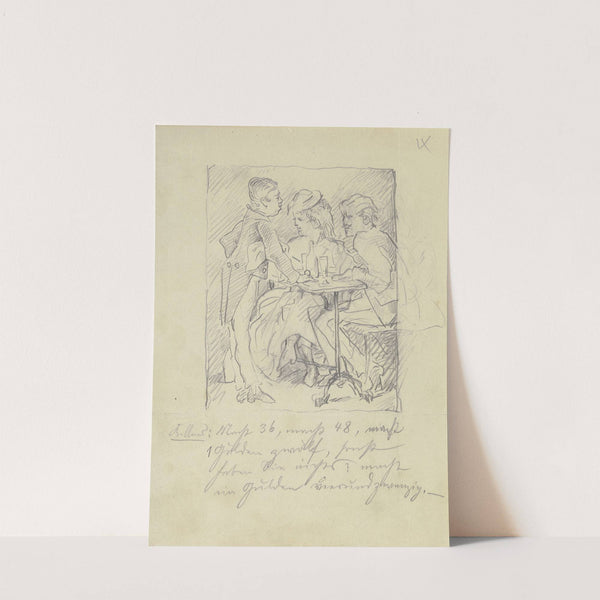 IX
Kellner: Macht 36, macht 48, macht
1 Gulden zwölf, sonst
haben Sie nichts? macht
ein Gulden vierundzwanzig. —